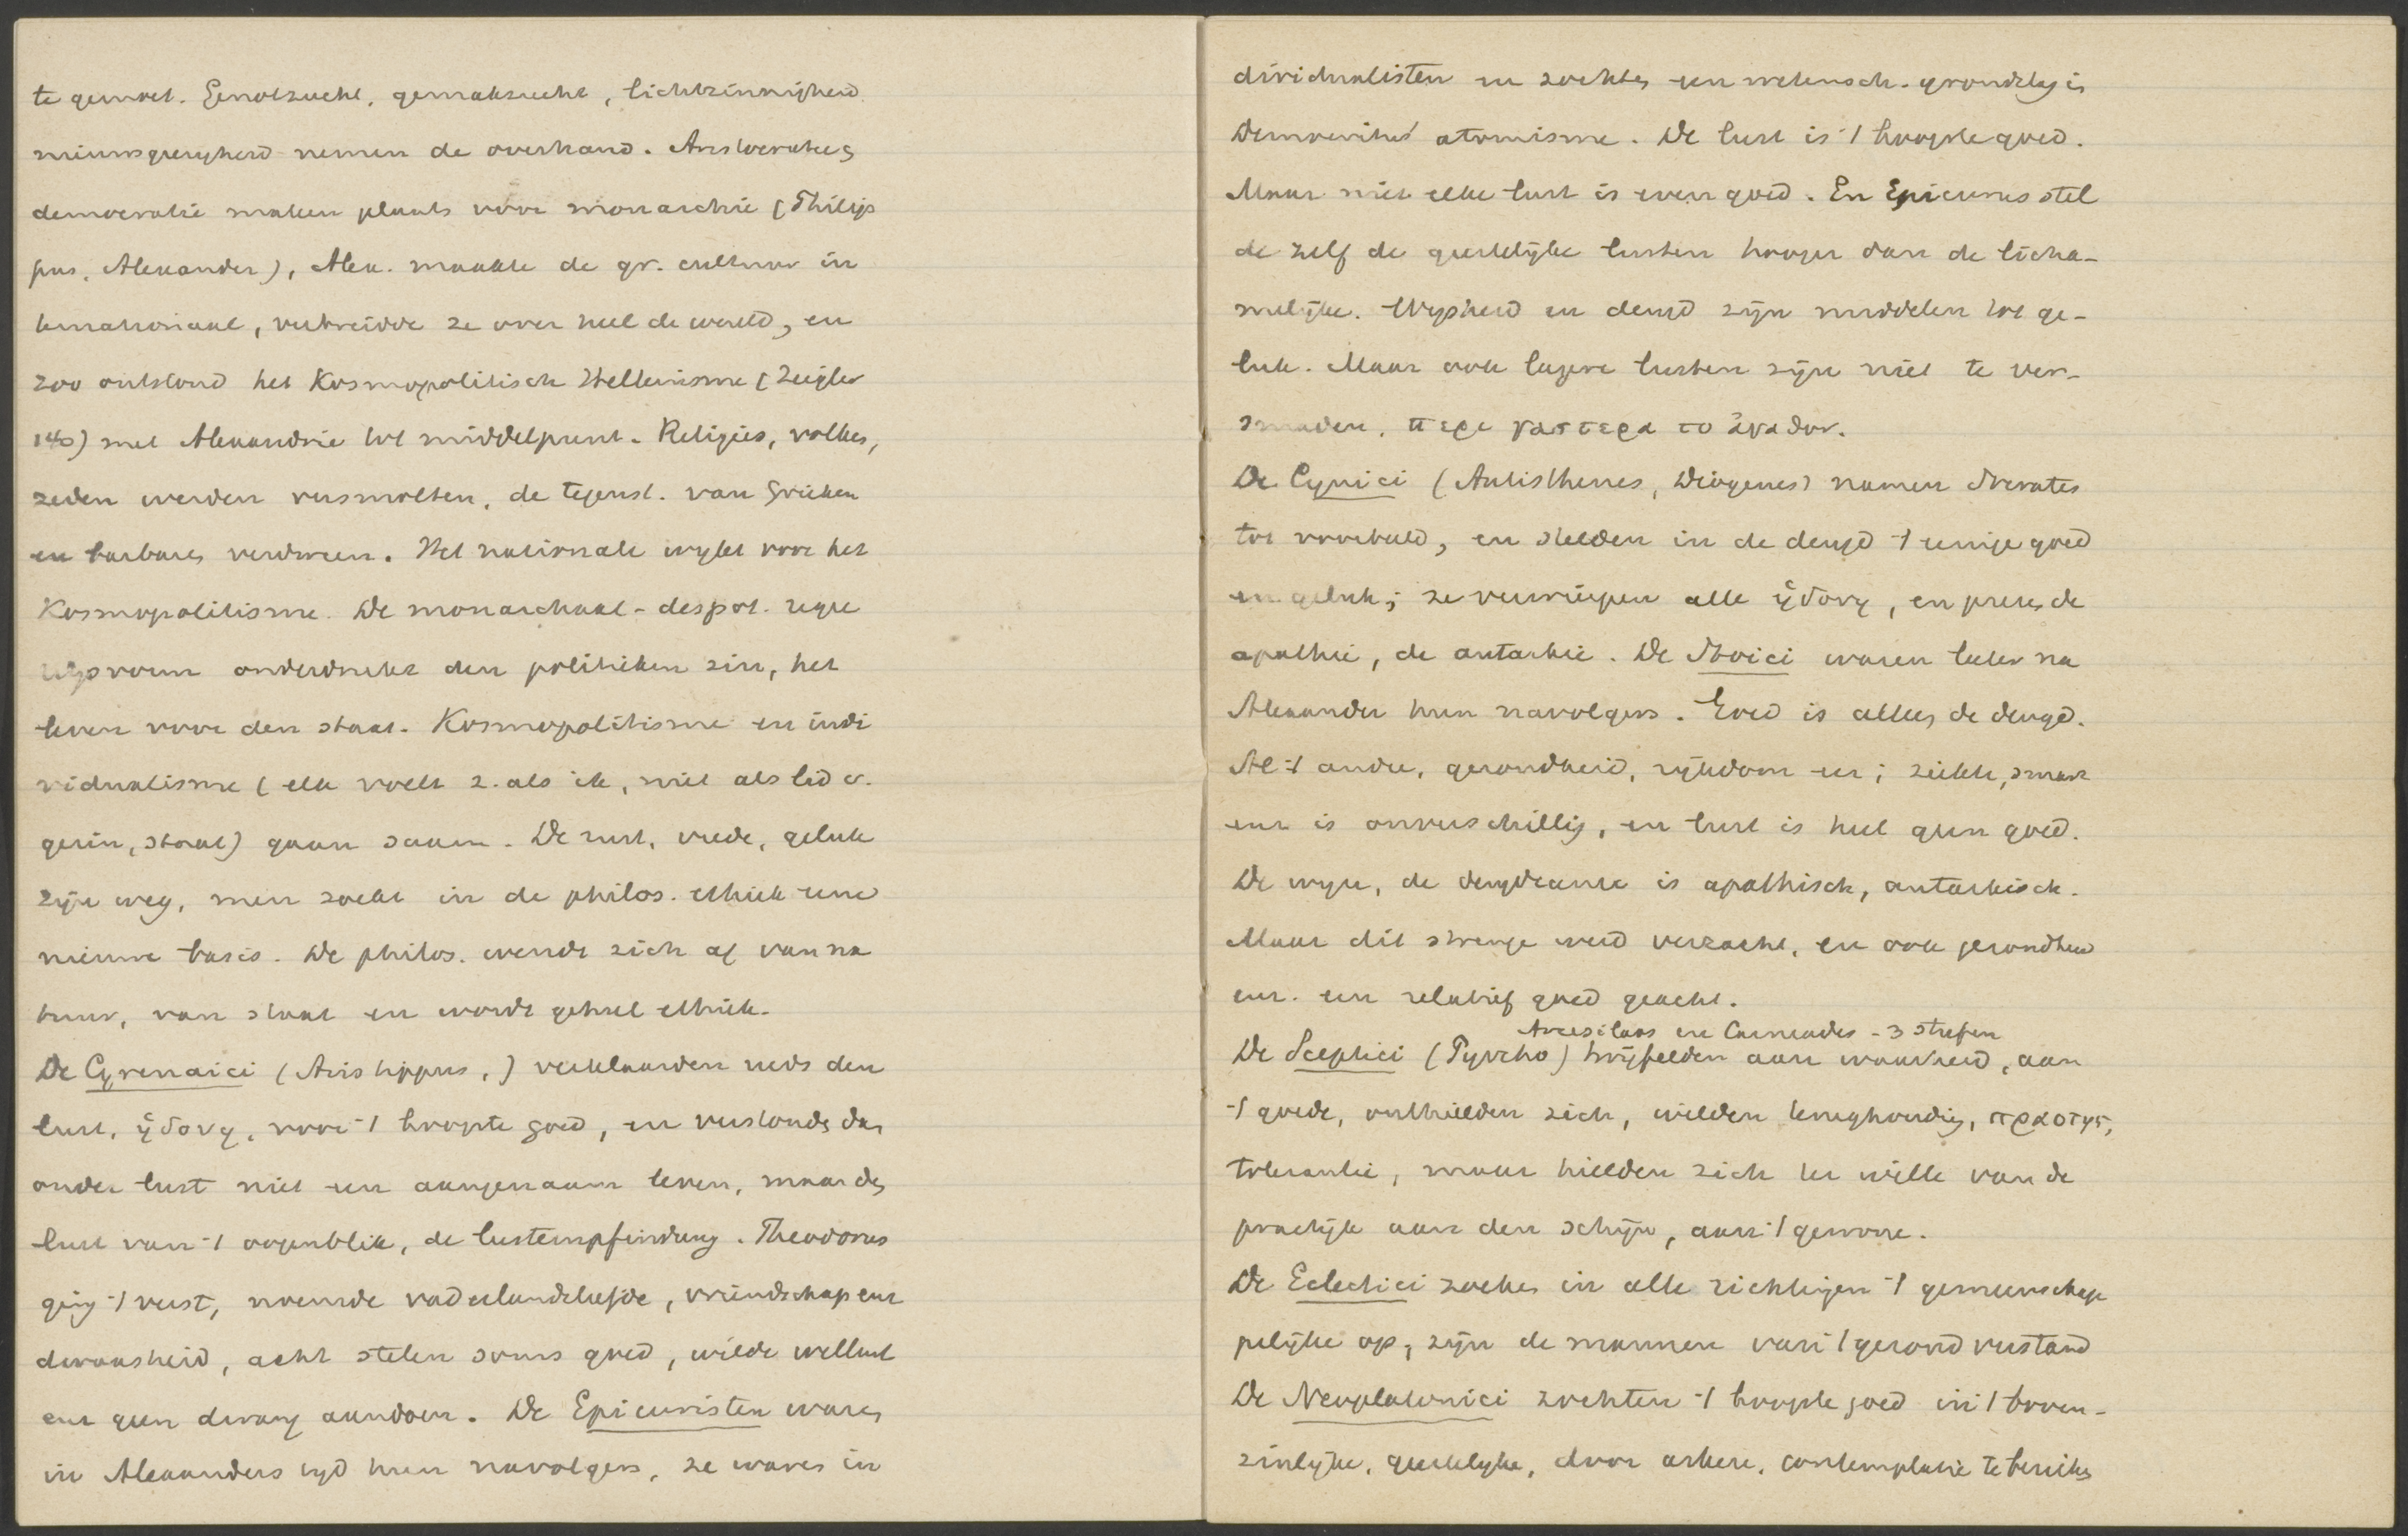 te gemoet. Genotzucht, gemakzucht, lichtzinnigheid
nieuwsgierigheid nemen de overhand. Aristocratie en
democratie maken plaats voor monarchie (Philip
pus, Alexander), Alex. maakte de gr. cultuur in
ternationaal, verbreidde ze over heel de wereld, en
zoo ontstond het Kosmopolitisch Hellenisme (Ziegler
140) met Alexandrie tot middelpunt. Religies, volken,
zeden werden versmolten, de tegenst. van Grieken
en barbaren verdween. Het nationale wykt voor het
Kosmopolitisme. De monarchaal-despot. regee
ringsvorm onderdrukt den politieken zin, het
leven voor den staat. Kosmopolitisme en indi
vidualisme (elk voelt z. als ik, niet als lid v.
gezin, staat) gaan saam. De rust, vrede, geluk
zijn weg, men zoekt in de philos. ethiek eene
nieuwe basis. De philos. wendt zich af van na
tuur, van staat en wordt geheel ethiek.
De Cyrenaici (Aristippus, ) verklaarden reeds den
lust, ἡδονη, voor 't hoogste goed, en verstonden daar
onder lust niet een aangenaam leven, maar den
lust van 't oogenblik, de lustempfindung. Theodorus
ging 't verst, noemde vaderlandsliefde, vriendschap enz
dwaasheid, acht stelen soms goed, wilde wellust
enz geen dwang aandoen. De Epicuristen waren
in Alexanders tyd hun navolgers, ze waren in
dividualisten en zochten een wetensch. grondslag in
Democritus' atomisme. De lust is 't hoogste goed.
Maar niet elke lust is even goed. En Epicurus stel
de zelf de geestelijke lusten hooger dan de licha-
melijke. Wysheid en deugd zijn middelen tot ge-
luk. Maar ook lagere lusten zijn niet te ver-
smaden, περι γαστερα το ἀγαθον.
De Cynici (Antisthenes, Diogenes) namen Socrates
tot voorbeeld, en stelden in de deugd 't eenige goed
en geluk; ze verwierpen alle ἡδονη, en prezen de
apathie, de autarkie. De Stoici waren later na
Alexander hun navolgers. Goed is alleen de deugd.
Al 't andre, gezondheid, rijkdom enz; ziekte, smart
enz is onverschillig, en lust is heel geen goed.
De wyze, de deugdzame is apathisch, autarkisch.
Maar dit strenge werd verzacht, en ook gezondheid
enz. een relatief goed geacht.
Arcesilaos en Carneades - 3 Strefen
De Sceptici (Pyrrho) twijfelden aan waarheid, aan
't goede, onthielden zich, wilden terughouding, πραοτης,
tolerantie, maar hielden zich ter wille van de
practijk aan den schijn, aan 't gewone.
De Eclectici zoeken in alle richtingen 't gemeenschap
pelijke op, zijn de mannen van 't gezond verstand
De Neoplatonici zochten 't hoogste goed in 't boven-
zinlijke, geestelyke, door askese, contemplatie te bereiken